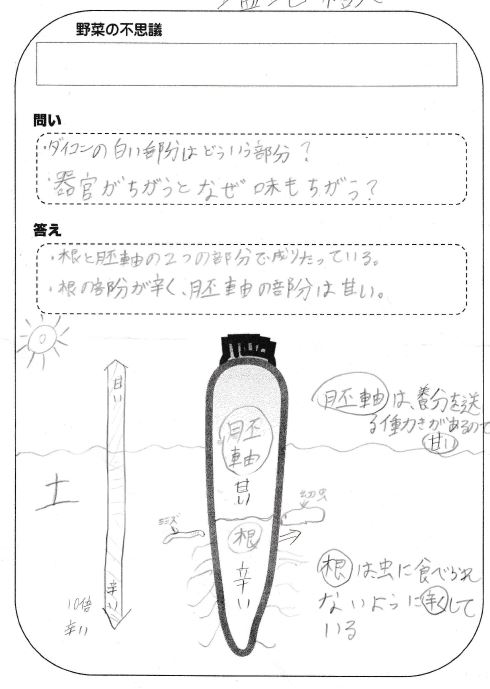 野菜の不思議
問い
・ダイコンの白い部分はどういう部分？
・器官がちがうとなぜ味もちがう？
答え
・根と胚軸の2つの部分で成りたっている。
・根の部分が辛く、胚軸の部分は甘い。
甘い
胚軸は、養分を送
る働きがあるので
甘い
胚軸
甘い
土
幼虫
ミミズ
根
辛い
辛い
10倍
辛い
根は虫に食べられ
ないように辛くして
いる